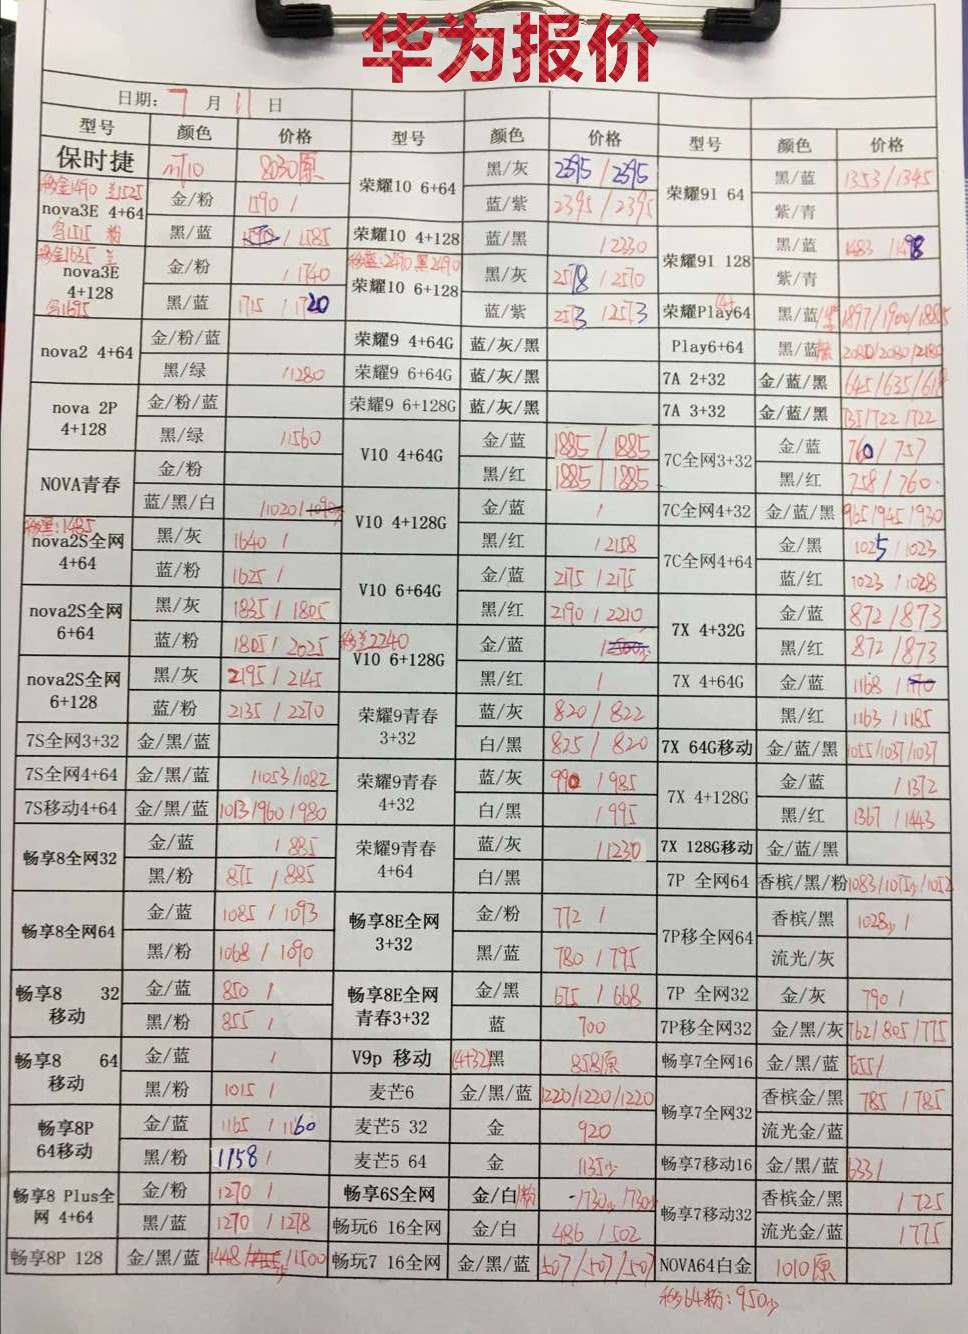 华为报价
日期: 7 月 11 日
型号 颜色 价格 型号 颜色 价格 型号 颜色 价格
保时捷 mT10 8030原
荣耀10 6+64 黑/灰 2395/2395
荣耀9I 64 黑/蓝 1353/1345
移金1490 兰1525
nova3E 4+64 金/粉 1590/
蓝/紫 2395/2395
紫/青
乌1515 粉
黑/蓝 /1585
荣耀10 4+128 蓝/黑 /2330
荣耀9I 128 黑/蓝 1483
移金1635 兰
nova3E 4+128 金/粉 /1740
荣耀10 6+128 黑/灰 2578/2570
紫/青
乌1695
黑/蓝 1715/1720
蓝/紫 2573/2573
荣耀Play64 黑/蓝 1897/1900/1885
nova2 4+64 金/粉/蓝
荣耀9 4+64G 蓝/灰/黑
Play6+64 黑/蓝 2080/2080/2180
黑/绿 /1280
荣耀9 6+64G 蓝/灰/黑
7A 2+32 金/蓝/黑 645/635/618
nova 2P 4+128 金/粉/蓝
荣耀9 6+128G 蓝/灰/黑
7A 3+32 金/蓝/黑 735/722/722
黑/绿 /1560
V10 4+64G 金/蓝 1885/1885
7C全网3+32 金/蓝 760/757
NOVA青春 金/粉
黑/红 1885/1885
黑/红 758/760
蓝/黑/白 /1020/
V10 4+128G 金/蓝 /
7C全网4+32 金/蓝/黑 965/945/930
移黑:1485
nova2S全网 4+64 黑/灰 1640/
黑/红 /2158
7C全网4+64 金/黑 1025/1023
蓝/粉 1625/
V10 6+64G 金/蓝 2175/2175
蓝/红 1023/1028
nova2S全网 6+64 黑/灰 1835/1805
黑/红 2190/2210
7X 4+32G 金/蓝 872/873
蓝/粉 1805/2025
移兰2240
V10 6+128G 金/蓝
黑/红 872/873
nova2S全网 6+128 黑/灰 2195/2145
黑/红 /
7X 4+64G 金/蓝 1168/
蓝/粉 2135/2270
荣耀9青春 3+32 蓝/灰 820/822
黑/红 1163/1185
7S全网3+32 金/黑/蓝
白/黑 825/820
7X 64G移动 金/蓝/黑 1055/1037/1037
7S全网4+64 金/黑/蓝 /1053/1082
荣耀9青春 4+32 蓝/灰 990/985
7X 4+128G 金/蓝 /1372
7S移动4+64 金/黑/蓝 1013/960/980
白/黑 /995
黑/红 1367/1443
畅享8全网32 金/蓝 /885
荣耀9青春 4+64 蓝/灰 /1230
7X 128G移动 金/蓝/黑
黑/粉 875/885
白/黑
7P 全网64 香槟/黑/粉 1083/1075/1052
畅享8全网64 金/蓝 1085/1093
畅享8E全网 3+32 金/粉 772/
7P移全网64 香槟/黑 1028少/
黑/粉 1068/1090
黑/蓝 780/795
流光/灰
畅享8 32 移动 金/蓝 850/
畅享8E全网 青春3+32 金/黑 675/668
7P 全网32 金/灰 790/
黑/粉 855/
蓝 700
7P移全网32 金/黑/灰 762/805/775
畅享8 64 移动 金/蓝 /
V9p 移动 (4+32)黑 858原
畅享7全网16 金/黑/蓝 655/
黑/粉 1015/
麦芒6 金/黑/蓝 1220/1220/1220
畅享7全网32 香槟金/黑 785/785
畅享8P 64移动 金/蓝 1165/1160
麦芒5 32 金 920
流光金/蓝
黑/粉 1158/
麦芒5 64 金 1135少
畅享7移动16 金/黑/蓝 633/
畅享8 Plus全网 4+64 金/粉 1270/
畅享6S全网 金/白/粉 -/730少/730少
畅享7移动32 香槟金/黑 /725
黑/蓝 1270/1278
畅玩6 16全网 金/白 486/502
流光金/蓝 /775
畅享8P 128 金/黑/蓝 1448/ /1500
畅玩7 16全网 金/黑/蓝 507/507/507
NOVA64白金 1010原
移64粉: 950少